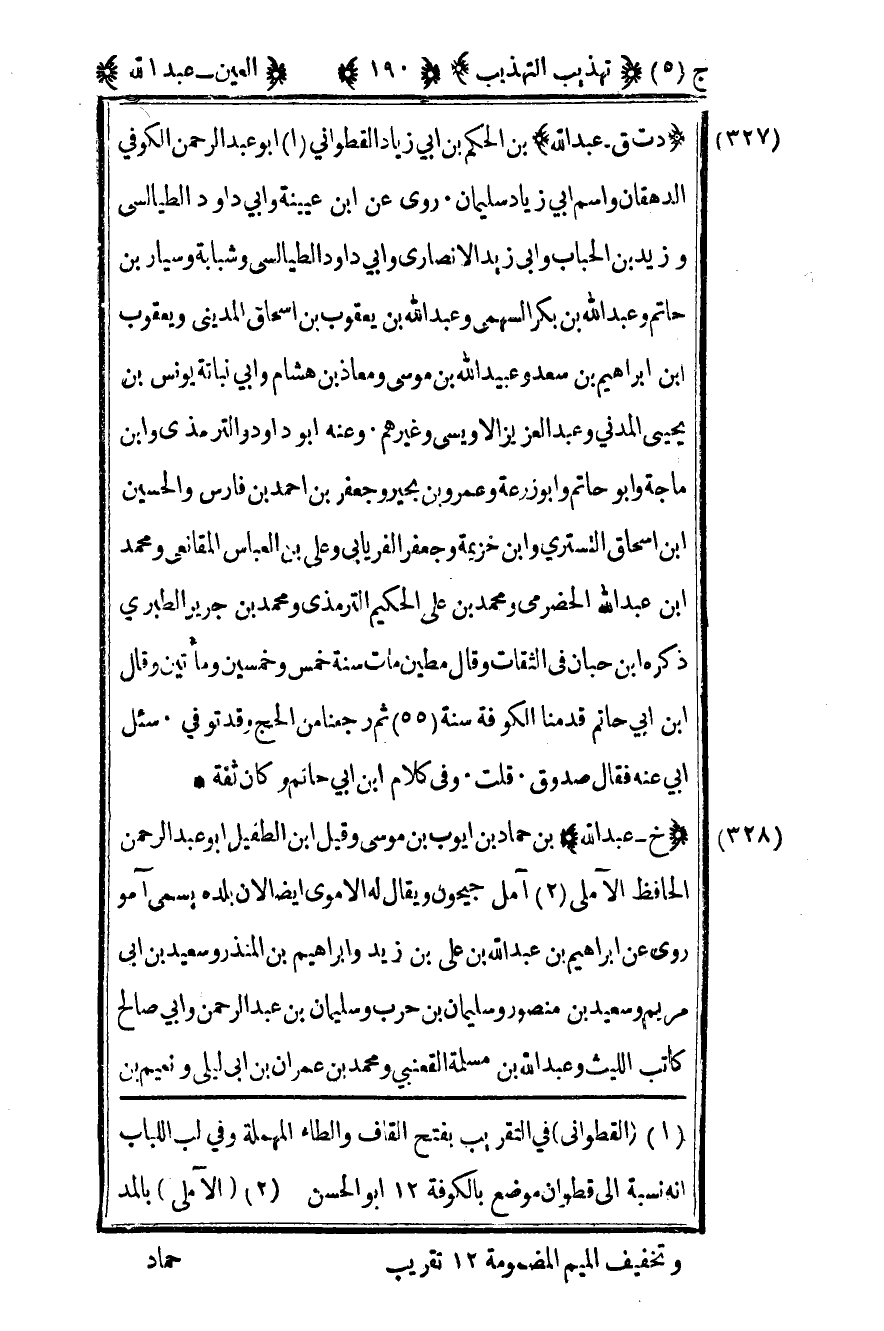 ج (٥) ﴿ تهذيب التهذيب ﴾ ﴿ ١٩٠ ﴾ ﴿ العين ـ عبد الله ﴾
(٣٢٧) ﴿ د ت ق ـ عبدالله ﴾ بن الحكم بن ابي زياد القطواني (١) ابو عبد الرحمن الكوفي
الدهقان واسم ابي زياد سليمان · روى عن ابن عيينة وابي داود الطيالسى
و زيد بن الحباب وابى زيد الانصارى وابي داود الطيالسى وشبابة وسيار بن
حاتم وعبد الله بن بكر السهمى وعبد الله بن يعقوب بن اسحاق المدينى ويعقوب
ابن ابراهيم بن سعد وعبيد الله بن موسى ومعاذ بن هشام وابي نباتة يونس بن
يحيى المدني وعبد العزيز الاويسى وغيرهم · وعنه ابو داود والترمذى وابن
ماجة وابو حاتم وابوزرعة وعمرو بن بجير وجعفر بن احمد بن فارس والحسين
ابن اسحاق التستري وابن خزيمة وجعفر الفريابي وعلى بن العباس المقانعى ومحمد
ابن عبد الله الحضرمى ومحمد بن على الحكيم الترمذى ومحمد بن جرير الطبري
ذكره ابن حبان فى الثقات وقال مطين مات سنة خمس وخمسين ومأتين وقال
ابن ابي حاتم قدمنا الكوفة سنة (٥٥) ثم رجعنا من الحج وقد توفي · سئل
ابي عنه فقال صدوق · قلت · وفى كلام ابن ابي حاتم وكان ثقة *
(٣٢٨) ﴿ خ ـ عبد الله ﴾ بن حماد بن ايوب بن موسى وقيل ابن الطفيل ابو عبد الرحمن
الحافظ الآملى (٢) آمل جيحون ويقال له الاموى ايضا لان بلده يسمى آمو
روى عن ابراهيم بن عبد الله بن على بن زيد وابراهيم بن المنذر وسعيد بن ابى
مريم وسعيد بن منصور وسليمان بن حرب وسليمان بن عبد الرحمن وابي صالح
كاتب الليث وعبد الله بن مسلمة القعنبي ومحمد بن عمران بن ابى ليلى و نعيم بن
(١) (القطوانى) في التقريب بفتح القاف والطاء المهملة وفي لب اللباب
انه نسبة الى قطوان موضع بالكوفة ١٢ ابو الحسن (٢) (الآملى) بالمد
و تخفيف الميم المضمومة ١٢ تقريب حماد